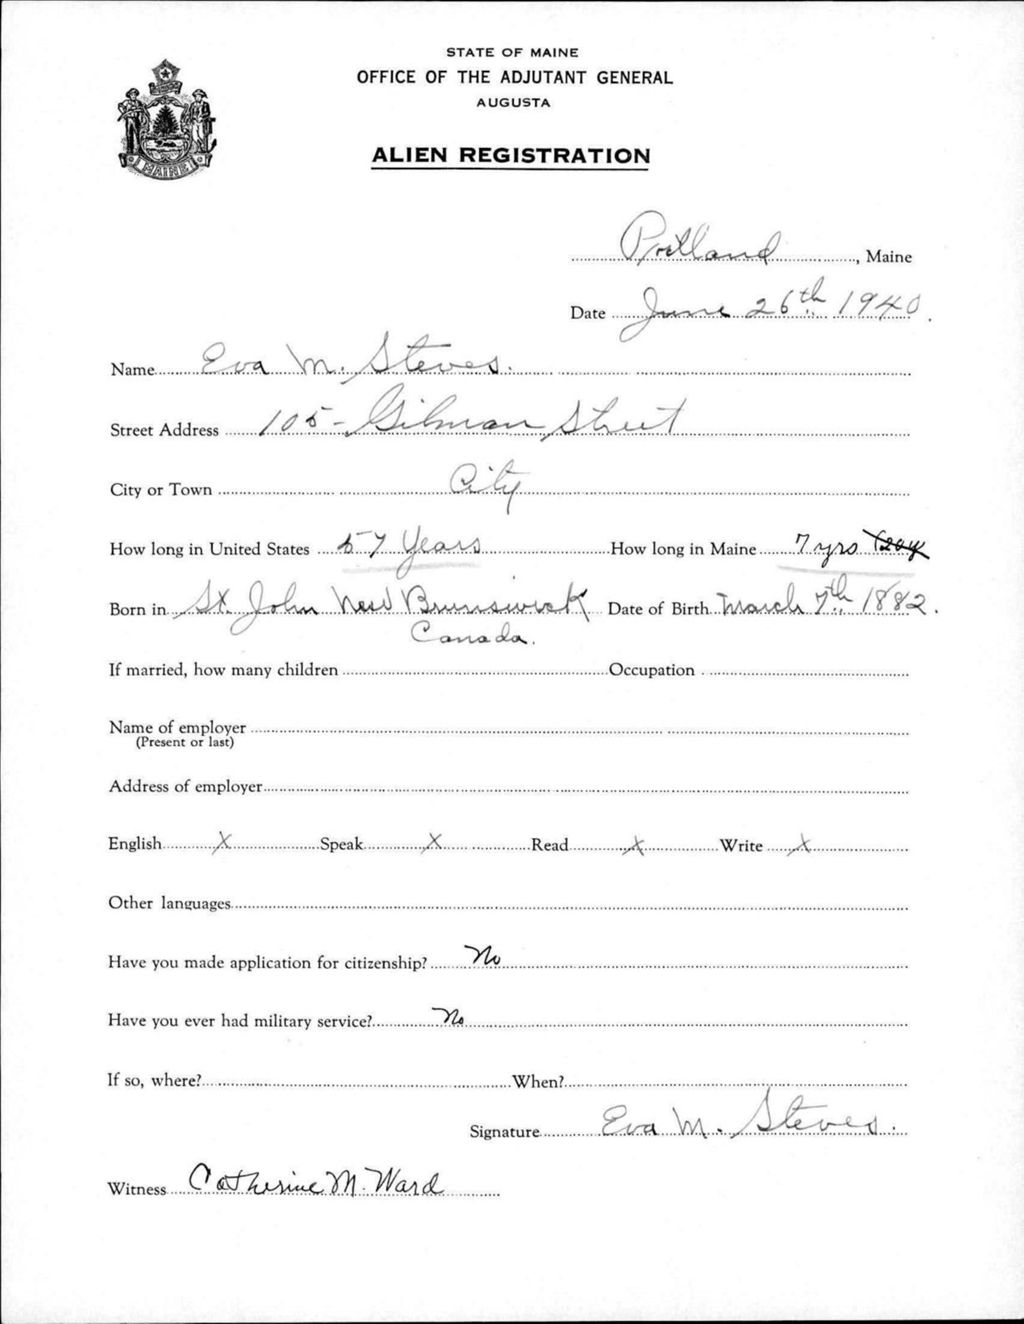 STATE OF MAINE
OFFICE OF THE ADJUTANT GENERAL
AUGUSTA
ALIEN REGISTRATION
MAINE
Portland, Maine
Date June 26th 1940.
Name Eva M. Steves.
Street Address 105 - Gilman Street
City or Town City
How long in United States 57 Years How long in Maine 7 yrs
Born in St. John New Brunswick Date of Birth March 7th 1882.
Canada.
If married, how many children Occupation
Name of employer
(Present or last)
Address of employer
English X Speak X Read X Write X
Other languages
Have you made application for citizenship? No
Have you ever had military service? No
If so, where? When?
Signature Eva M. Steves.
Witness Catherine M. Ward